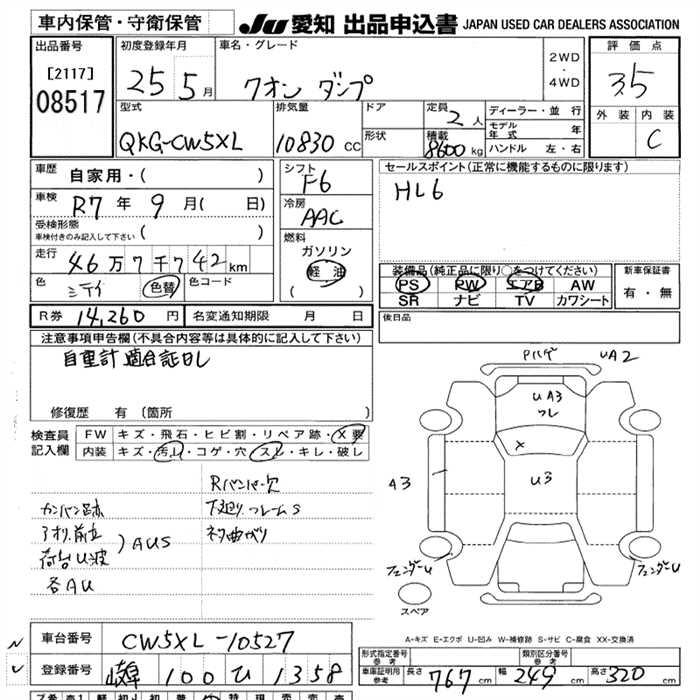 車内保管・守衛保管
JU 愛知 出品申込書 JAPAN USED CAR DEALERS ASSOCIATION
出品番号
[2117]
08517
初度登録年月
25 5月
車名・グレード
クオン ダンプ
2WD
・
4WD
評価点
3.5
外装 内装
C
型式
QKG-CW5XL
排気量
10830 CC
ドア
形状
定員
2人
積載
8600 kg
ディーラー・並行
モデル年式 年
ハンドル 左・右
車歴
自家用・( )
車検
R7年 9月( 日)
受検形態
車検付きのみ記入して下さい ( )
走行
46万7千742km
色
色替
色コード
シフト
F6
冷房
AAC
燃料
ガソリン
軽油
( )
セールスポイント(正常に機能するものに限ります)
HL6
装備品(純正品に限り○をつけてください)
PS PW エアB AW
SR ナビ TV カワシート
新車保証書
有・無
R券 14,260円
名変通知期限 月 日
後日品
注意事項申告欄(不具合内容等は具体的に記入して下さい)
自重計適合証ナシ
修復歴 有 (箇所 )
検査員
記入欄
FW キズ・飛石・ヒビ割・リペア跡・X要
内装 キズ・汚れ・コゲ・穴・スレ・キレ・破レ
Rバンパー欠
カンバン跡
下廻り、フレームS
アオリ、前立
荷台U波
)AUS
ネタ曲がり
各AU
Pハゲ
UA2
UA3
フレ
X
U3
A3
フェンダーU
フェンダーU
スペア
A-キズ E-エクボ U-凹み W-補修跡 S-サビ C-腐食 XX-交換済
車台番号
CW5XL-10527
登録番号
岐阜 100 ひ 1358
形式指定番号
参考
類別区分番号
参考
車庫証明用
参考
長さ 767cm
幅 249cm
高さ 320cm